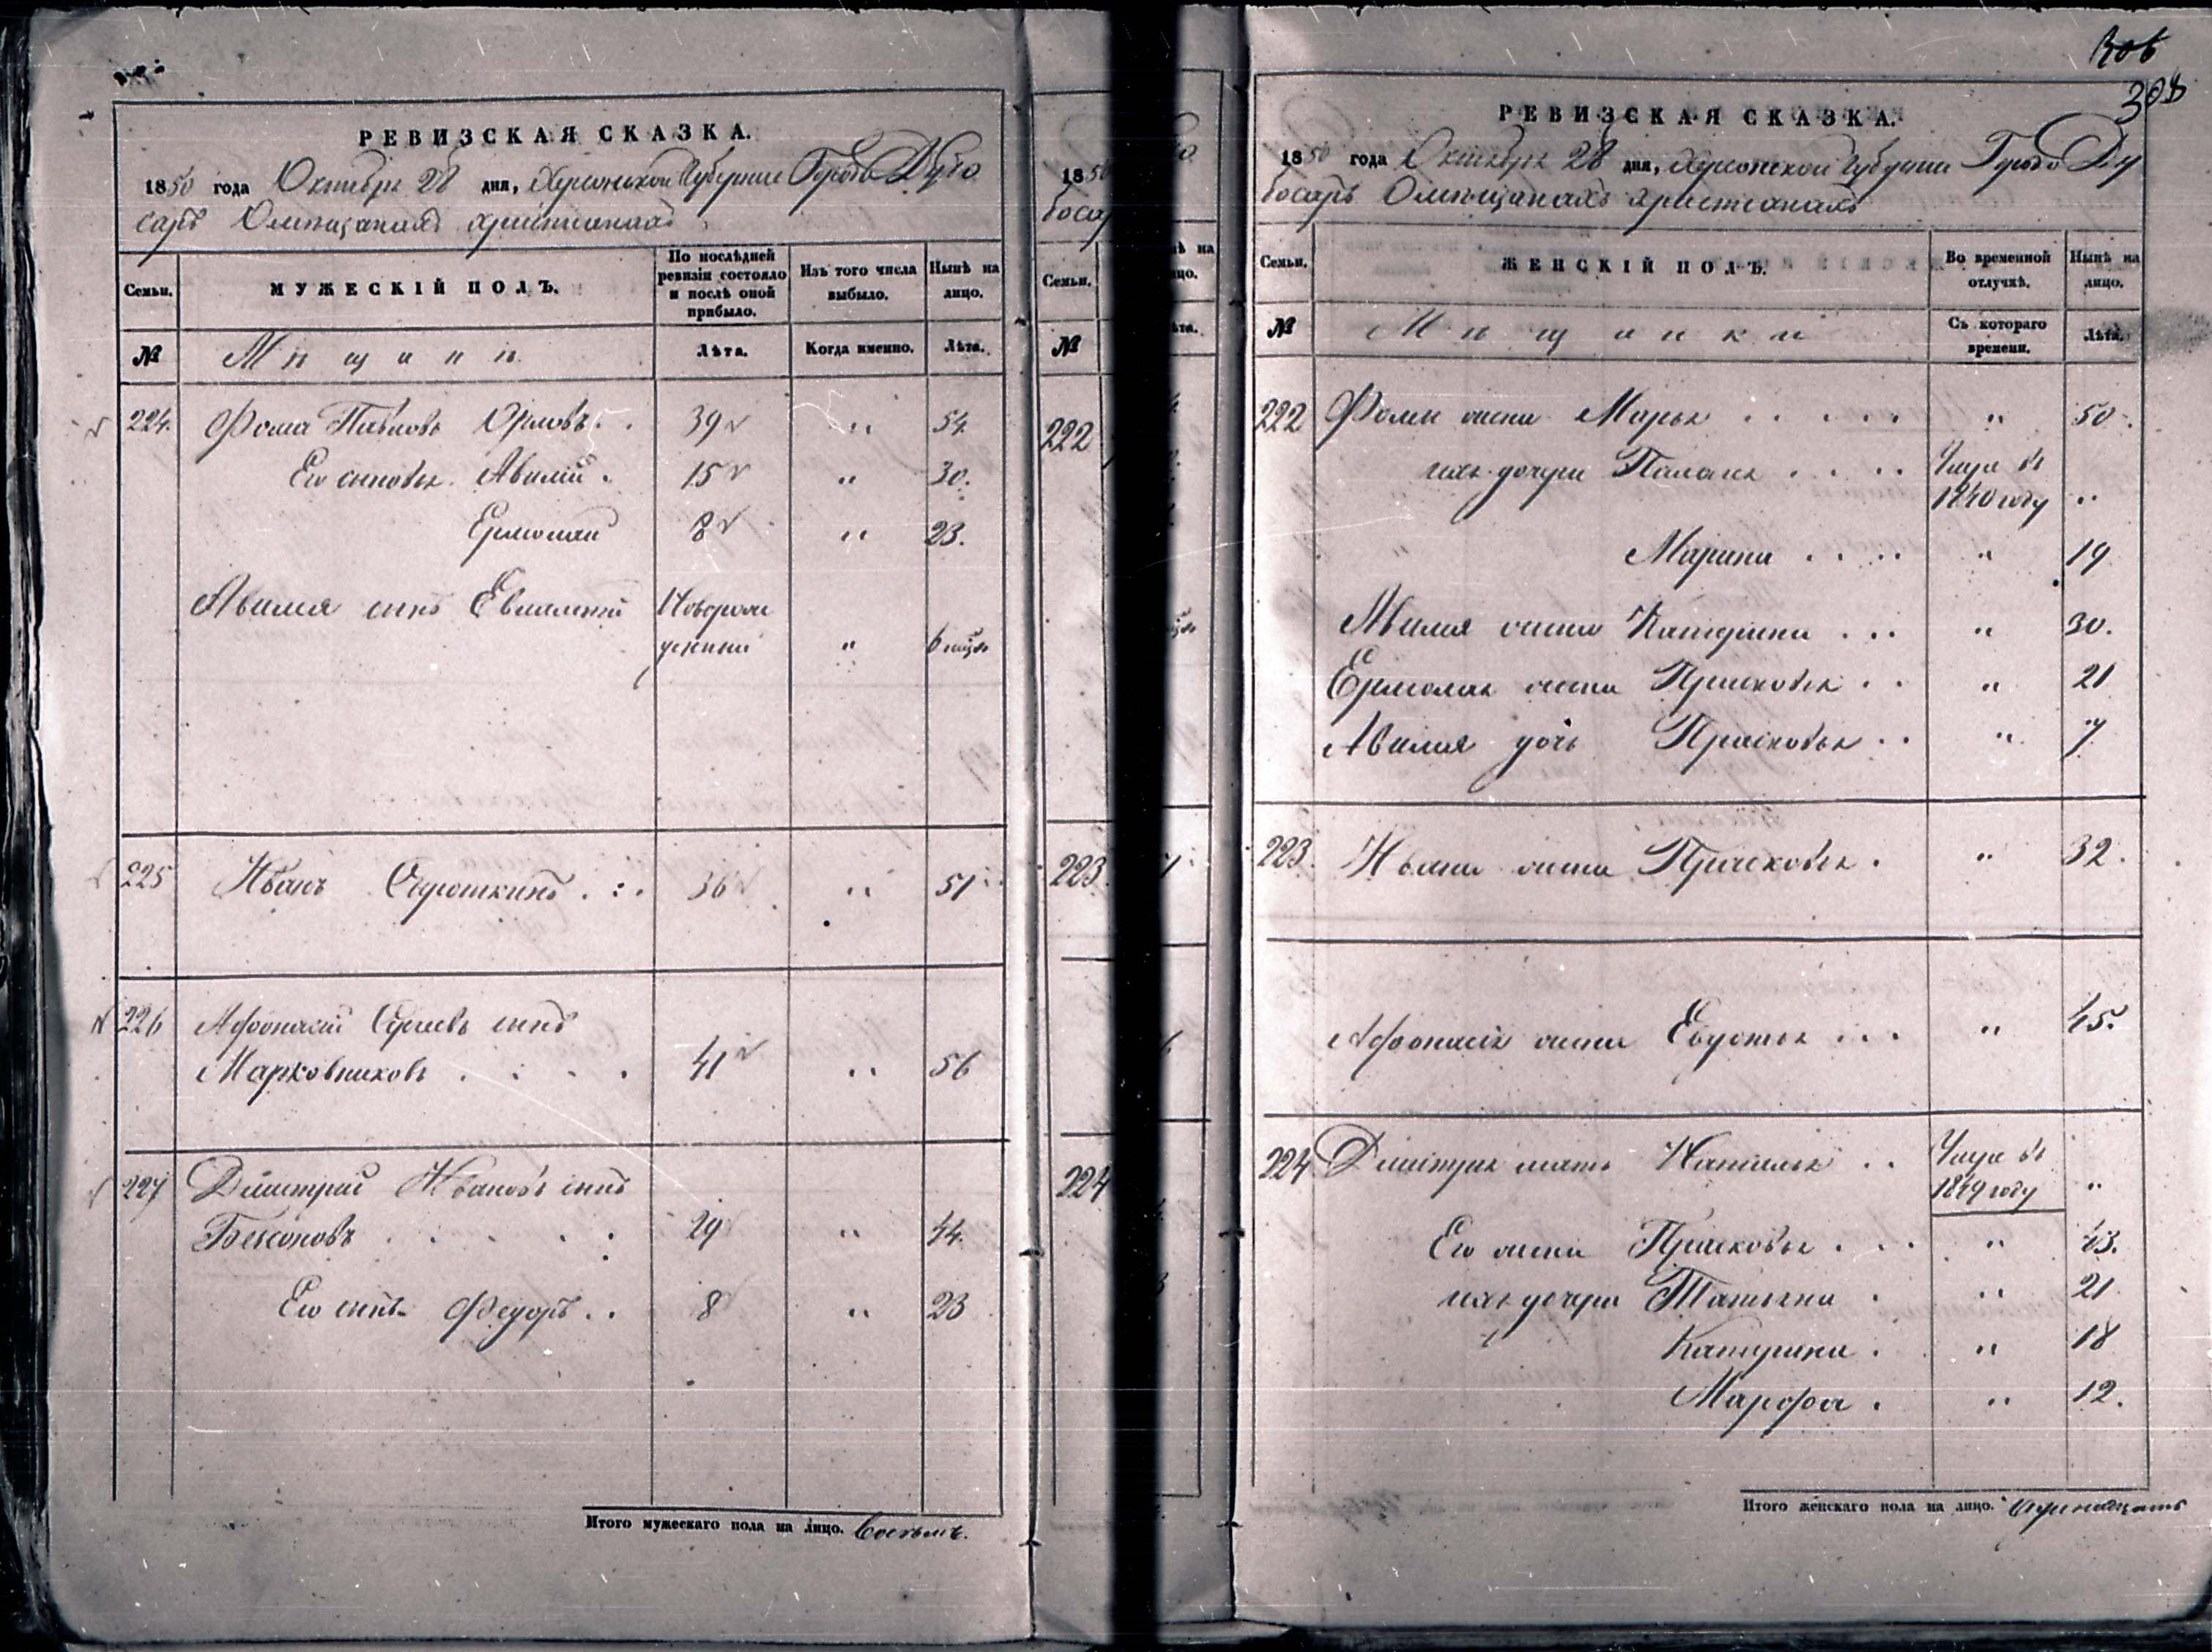 РЕВИЗСКАЯ СКАЗКА.
1850 года Октября 28 дня, Херсонской Губернии Города Дубо
саръ Омещанахъ христианахъ
Семьи.
МУЖЕСКІЙ ПОЛЪ.
По послѣдней
ревизіи состояло
и послѣ оной
прибыло.
Изъ того числа
выбыло.
Нынѣ на
лицо.
№
Мѣщане
Лѣта.
Когда именно.
Лѣта.
224. Фома Павловъ Орловъ . . 39 " 54
Его сыновья Авилий . 15 " 30.
Ермолай 8 " 23.
Авилия сынъ Евлампий Новорож
денный " 6 мѣся
225 Иванъ Сироткинъ . : . 36 " 51
226 Афонасий Сергеевъ сынъ
Марковниковъ . . . . 41 " 56
227 Дмитрий Ивановъ сынъ
Безсоновъ . . . . : 29 " 44.
Его сынъ Федоръ . . 8 " 23
Итого мужескаго пола на лицо. Восемь.
1850
босар
Семьи.
№
222
223
224
306
РЕВИЗСКАЯ СКАЗКА.
1850 года Октября 28 дня, Херсонской Губернии Города Ду
босаръ Омещанахъ христианахъ
Семьи.
ЖЕНСКІЙ ПОЛЪ.
Во временной
отлучкѣ.
Нынѣ на
лицо.
№
Мѣщанки
Съ котораго
времени.
Лѣта.
222 Фомы жена Марья . . . . . " 50.
ихъ дочери Палагея . . . . Умре въ
1840 году "
" Марина . . . . " 19
Авилия жена Катерина . . . " 30.
Ермолая жена Прасковья . . " 21
Авилия дочь Прасковья . . " 7
223. Ивана жена Прасковья . " 32.
Афонасия жена Евдотья . . . " 45.
224 Дмитрия мать Наталья . . Умре въ
1849 году "
Его жена Прасковья . . . " 43.
ихъ дочери Татьяна . " 21
Катерина . " 18
Марфа . " 12.
Итого женскаго пола на лицо. Одинадцать